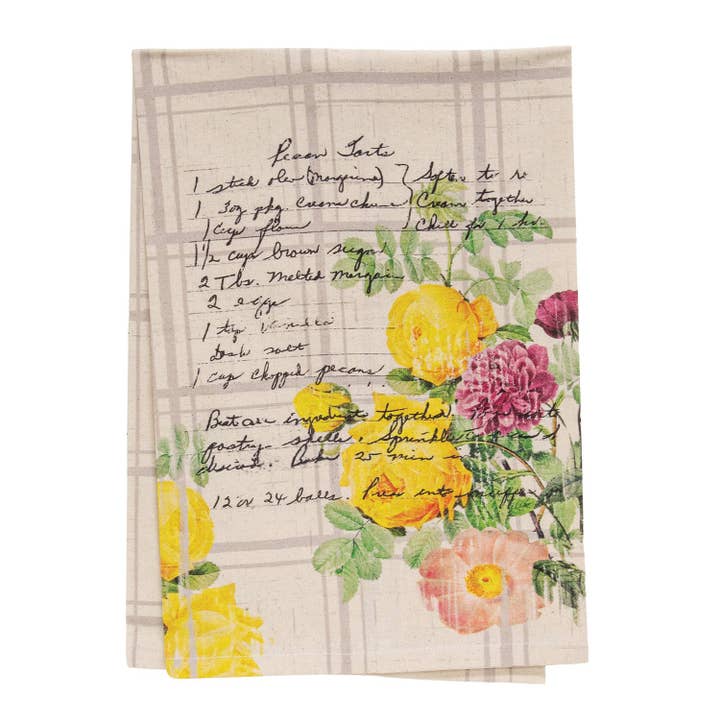 Pecan Tarts
1 stick oleo (Margarine) } Soften to r
1 3oz pkg. Cream Cheese } Cream together
1 cup flour } Chill for 1 hr.
1 1/2 cup brown sugar
2 Tbs. Melted Margarin
2 eggs
1 tsp Vanilla
Dash salt
1 cup chopped pecans
Beat all ingredients together. into
pastry shells. Sprinkle
desired. Bake 25 min
12 or 24 balls. Press into muffin